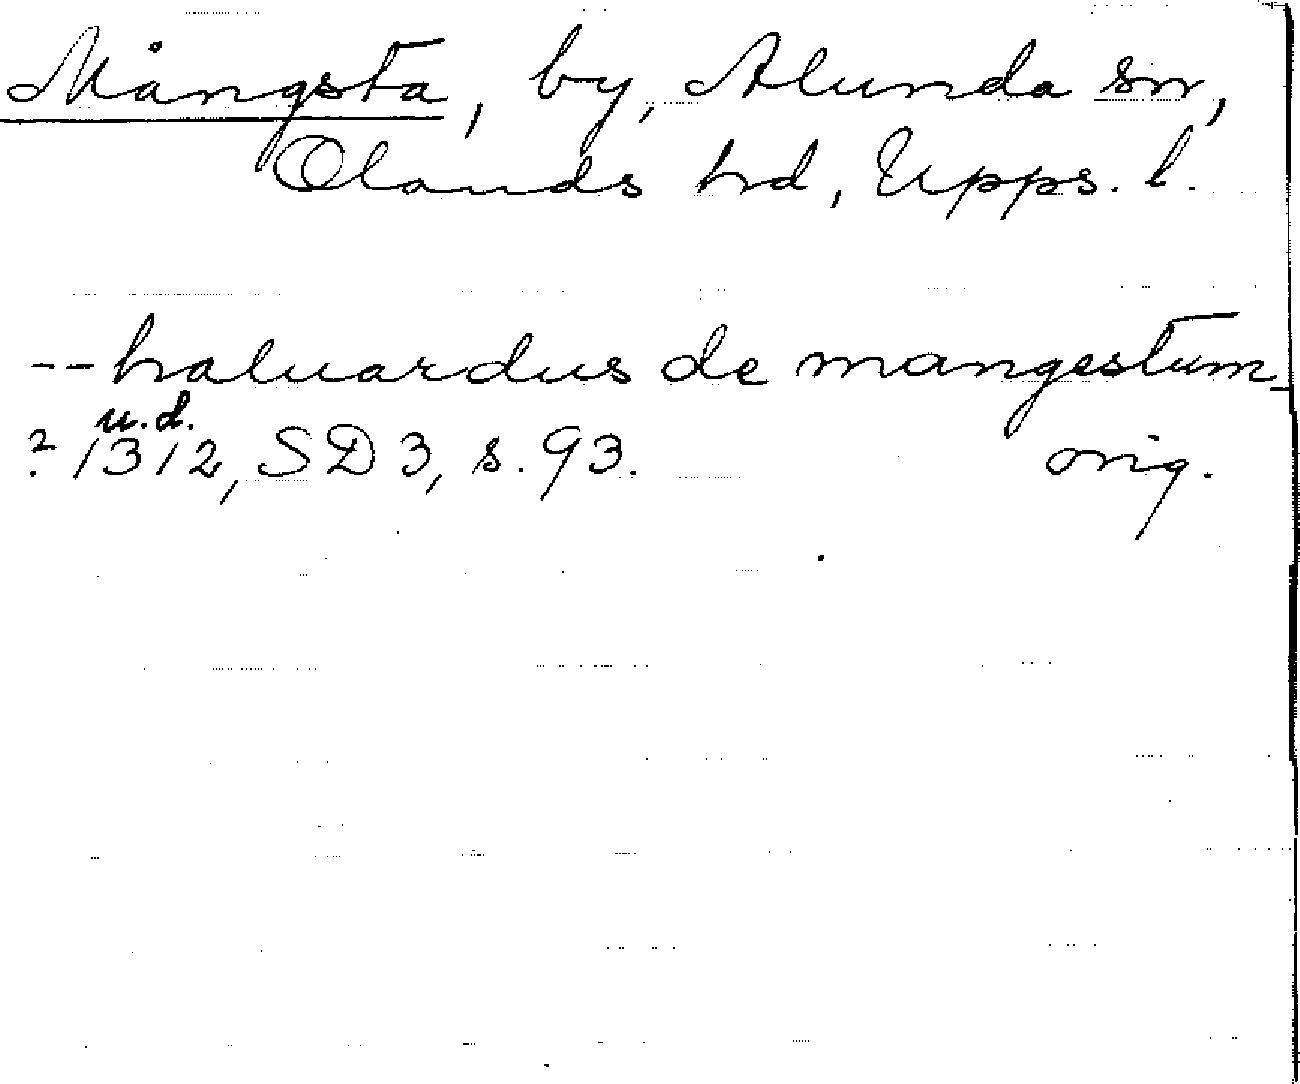 Mångsta, by, Alunda sn,
Olands hd, Upps. l.
-- haluardus de mangestum
u.d.
? 1312, SD 3, s. 93. orig.